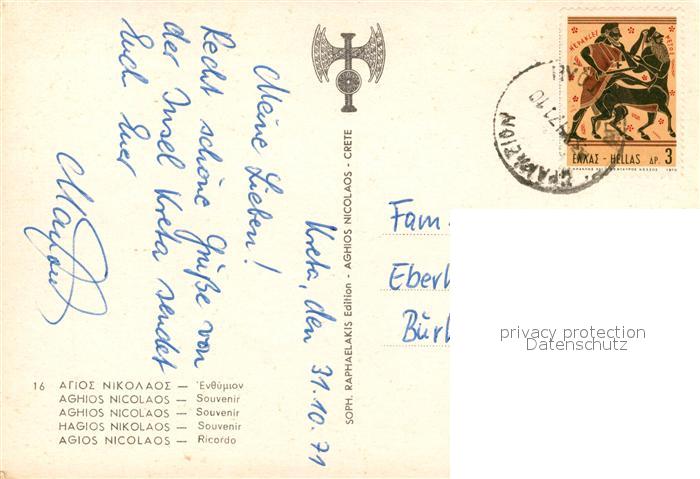 Kreta, den 31.10.71
Meine Lieben!
Recht schöne Grüße von
der Insel Kreta sendet
Euch Euer
SOPH. RAPHAELAKIS Edition - AGHIOS NICOLAOS - CRETE
16 ΑΓΙΟΣ ΝΙΚΟΛΑΟΣ — Ἐνθύμιον
AGHIOS NICOLAOS — Souvenir
AGHIOS NICOLAOS — Souvenir
HAGIOS NIKOLAOS — Souvenir
AGIOS NICOLAOS — Ricordo
ΕΛΛΑΣ - HELLAS ΔΡ. 3
Fam
Eberh
Bür
privacy protection
Datenschutz